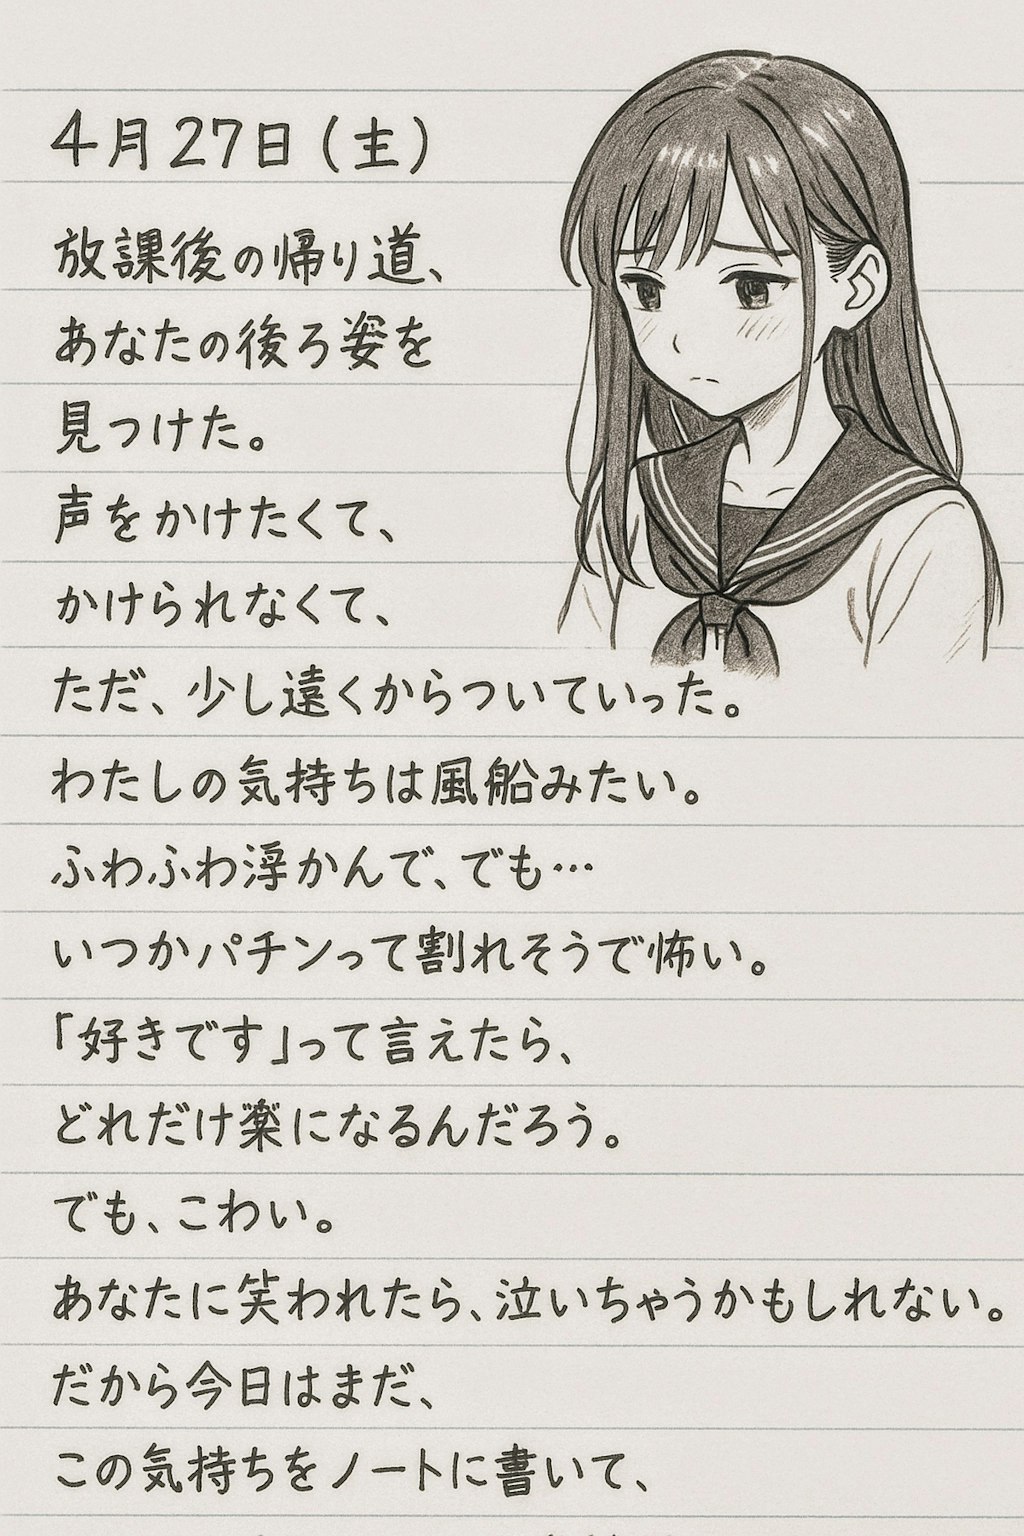 4月27日(主)
放課後の帰り道、
あなたの後ろ姿を
見つけた。
声をかけたくて、
かけられなくて、
ただ、少し遠くからついていった。
わたしの気持ちは風船みたい。
ふわふわ浮かんで、でも…
いつかパチンって割れそうで怖い。
「好きです」って言えたら、
どれだけ楽になるんだろう。
でも、こわい。
あなたに笑われたら、泣いちゃうかもしれない。
だから今日はまだ、
この気持ちをノートに書いて、